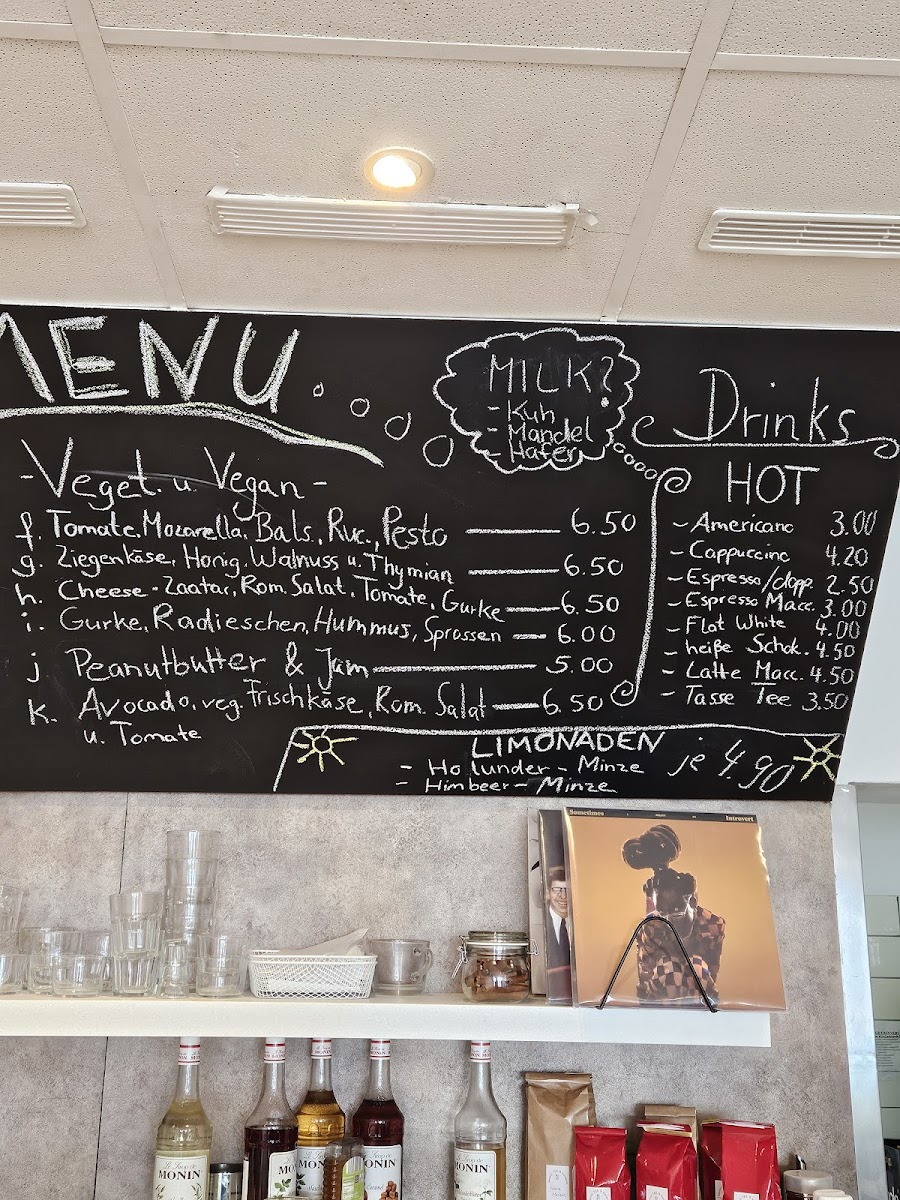 MENU
-Veget. u. Vegan-
f. Tomate, Mozarella, Bals., Ruc., Pesto 6.50
g. Ziegenkäse, Honig, Walnuss u. Thymian 6.50
h. Cheese-Zaatar, Rom. Salat, Tomate, Gurke 6.50
i. Gurke, Radieschen, Hummus, Sprossen 6.00
j Peanutbutter & Jam 5.00
k. Avocado, veg. Frischkäse, Rom. Salat 6.50
u. Tomate
MILK?
- Kuh
- Mandel
- Hafer
Drinks
HOT
- Americano 3.00
- Cappuccino 4.20
- Espresso/dopp. 2.50
- Espresso Macc. 3.00
- Flat White 4.00
- heiße Schok. 4.50
- Latte Macc. 4.50
- Tasse Tee 3.50
LIMONADEN
- Holunder - Minze je 4.90
- Himbeer - Minze
Sometimes Introvert
MONIN
MONIN
MONIN
MONIN
MONIN